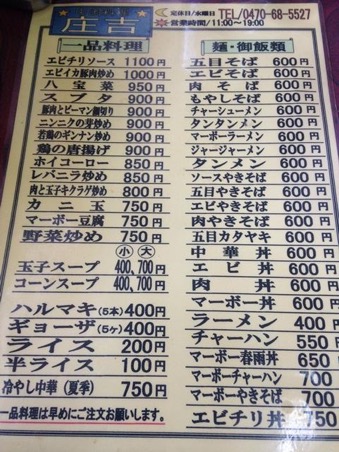 庄吉
定休日/水曜日 TEL/0470-68-5527
営業時間/11:00〜19:00
一品料理
エビチリソース 1100円
エビイカ豚肉炒め 1000円
八宝菜 950円
スブタ 900円
豚肉とピーマン細切り 900円
ニンニクの芽炒め 900円
若鶏のギンナン炒め 900円
鶏の唐揚げ 900円
ホイコーロー 850円
レバニラ炒め 850円
肉と玉子キクラゲ炒め 800円
カニ玉 750円
マーボー豆腐 750円
野菜炒め 750円
小 大
玉子スープ 400,700円
コーンスープ 400,700円
ハルマキ(5本)400円
ギョーザ(5ケ)400円
ライス 200円
半ライス 100円
冷やし中華(夏季) 750円
一品料理は早めにご注文お願いします。
麺・御飯類
五目そば 600円
エビそば 600円
肉そば 600円
もやしそば 600円
チャーシューメン 600円
タンタンメン 600円
マーボーラーメン 600円
ジャージャーメン 600円
タンメン 600円
ソースやきそば 600円
五目やきそば 600円
エビやきそば 600円
肉やきそば 600円
五目カタヤキ 600円
中華丼 600円
エビ丼 600円
肉丼 600円
マーボー丼 600円
ラーメン 400円
チャーハン 550円
マーボー春雨丼 650円
マーボーチャーハン 700
マーボーやきそば 700
エビチリ丼 750